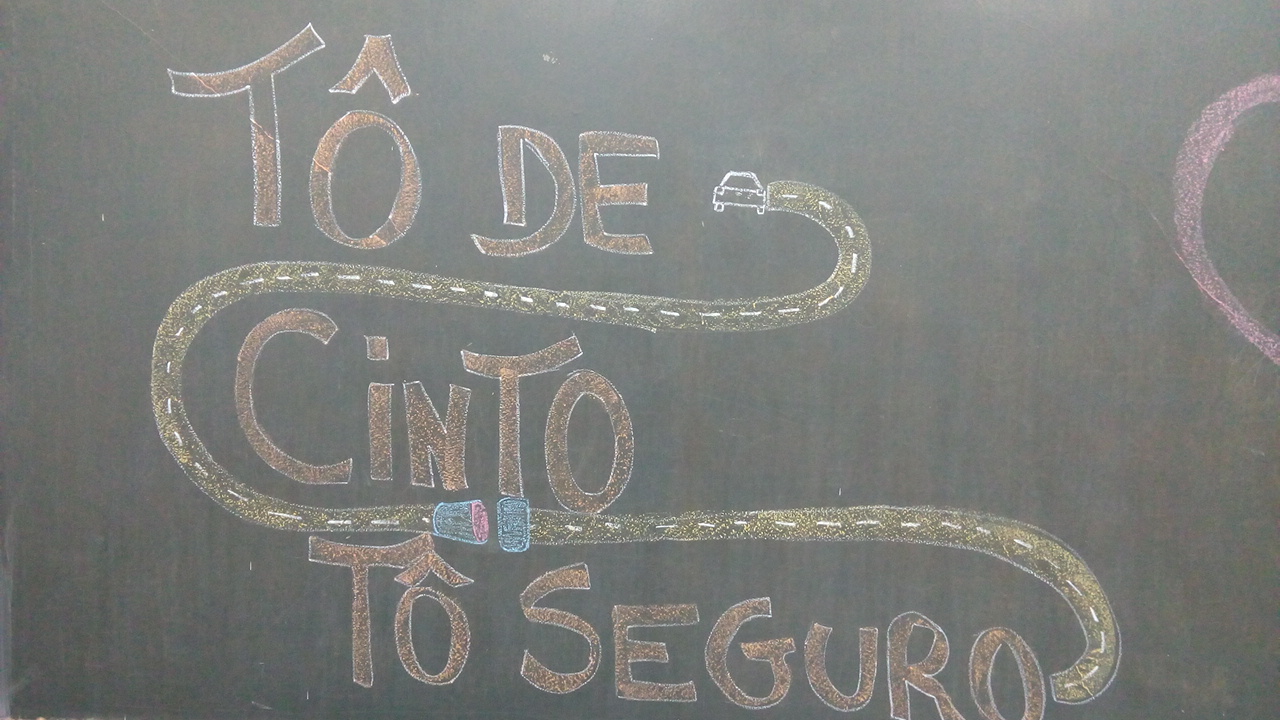 TÔ DE
CiNTO
TÔ SEGURO